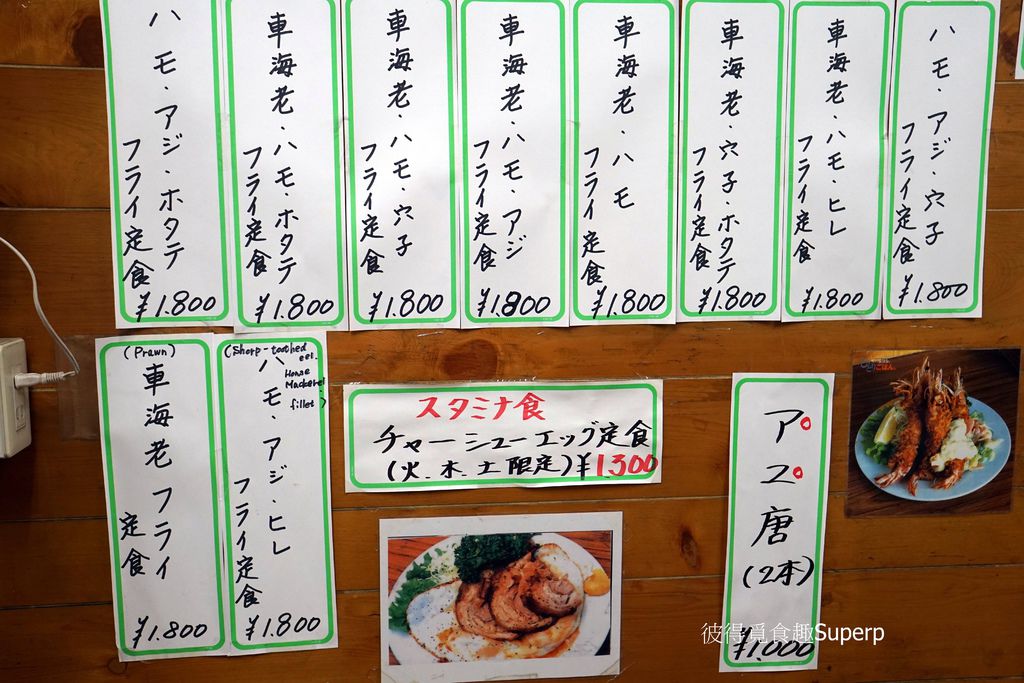 ハモ・アジ・ホタテ
フライ定食
¥1.800
車海老・ハモ・ホタテ
フライ定食
¥1.800
車海老・ハモ・穴子
フライ定食
¥1.800
車海老・ハモ・アジ
フライ定食
¥1.800
車海老・ハモ
フライ定食
¥1.800
車海老・穴子・ホタテ
フライ定食
¥1.800
車海老・ハモ・ヒレ
フライ定食
¥1.800
ハモ・アジ・穴子
フライ定食
¥1.800
(Prawn)
車海老フライ
定食
¥1.800
(Shorp-toothed
eel.
Horse
Mackerel
fillet)
ハモ・アジ・ヒレ
フライ定食
¥1.800
スタミナ食
チャーシューエッグ定食
(火.木.土限定)¥1.300
アプ唐
(2本)
¥1,000
彼得覓食趣Superp